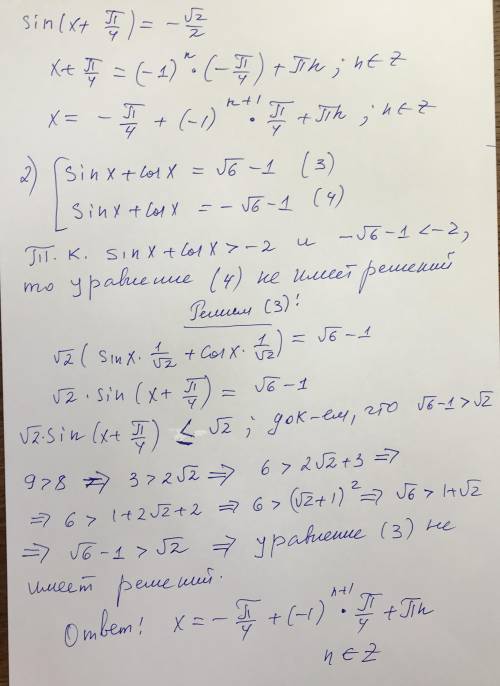 sin(x + π/4) = -√2/2
x + π/4 = (-1)^n · (-π/4) + πn ; n ∈ Z
x = -π/4 + (-1)^(n+1) · π/4 + πn ; n ∈ Z
2) [ sinx + cosx = √6 - 1 (3)
sinx + cosx = -√6 - 1 (4)
Т.к. sinx + cosx > -2 и -√6 - 1 < -2,
то уравнение (4) не имеет решений
Решим (3)!
√2 ( sinx · 1/√2 + cosx · 1/√2 ) = √6 - 1
√2 · sin (x + π/4) = √6 - 1
√2 · sin (x + π/4) ≤ √2 ; док-ем, что √6 - 1 > √2
9 > 8 ⇒ 3 > 2√2 ⇒ 6 > 2√2 + 3 ⇒
⇒ 6 > 1 + 2√2 + 2 ⇒ 6 > (√2 + 1)^2 ⇒ √6 > 1 + √2
⇒ √6 - 1 > √2 ⇒ уравнение (3) не
имеет решений.
Ответ! x = -π/4 + (-1)^(n+1) · π/4 + πn
n ∈ Z